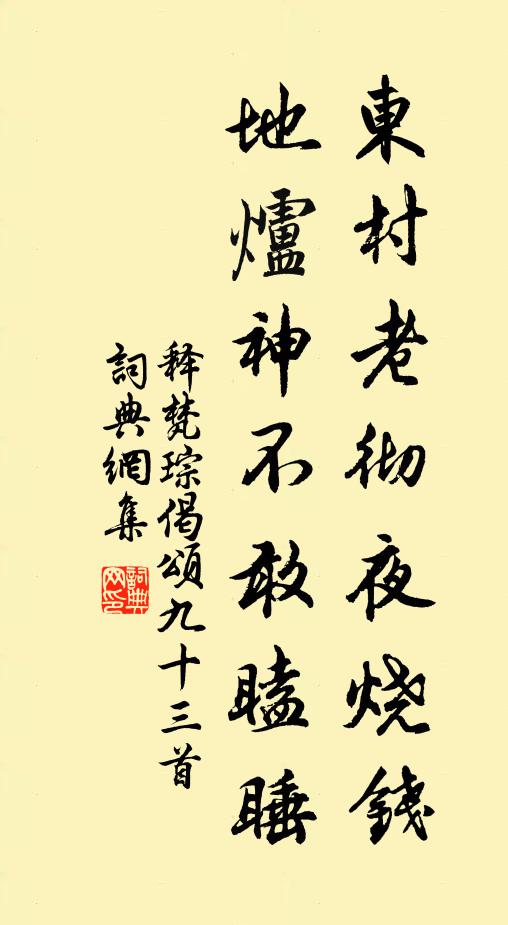 東村老彻夜烧錢
地爐神不敢瞌睡
释梵琮偈頌九十三首
詞典網集
詞典
网印